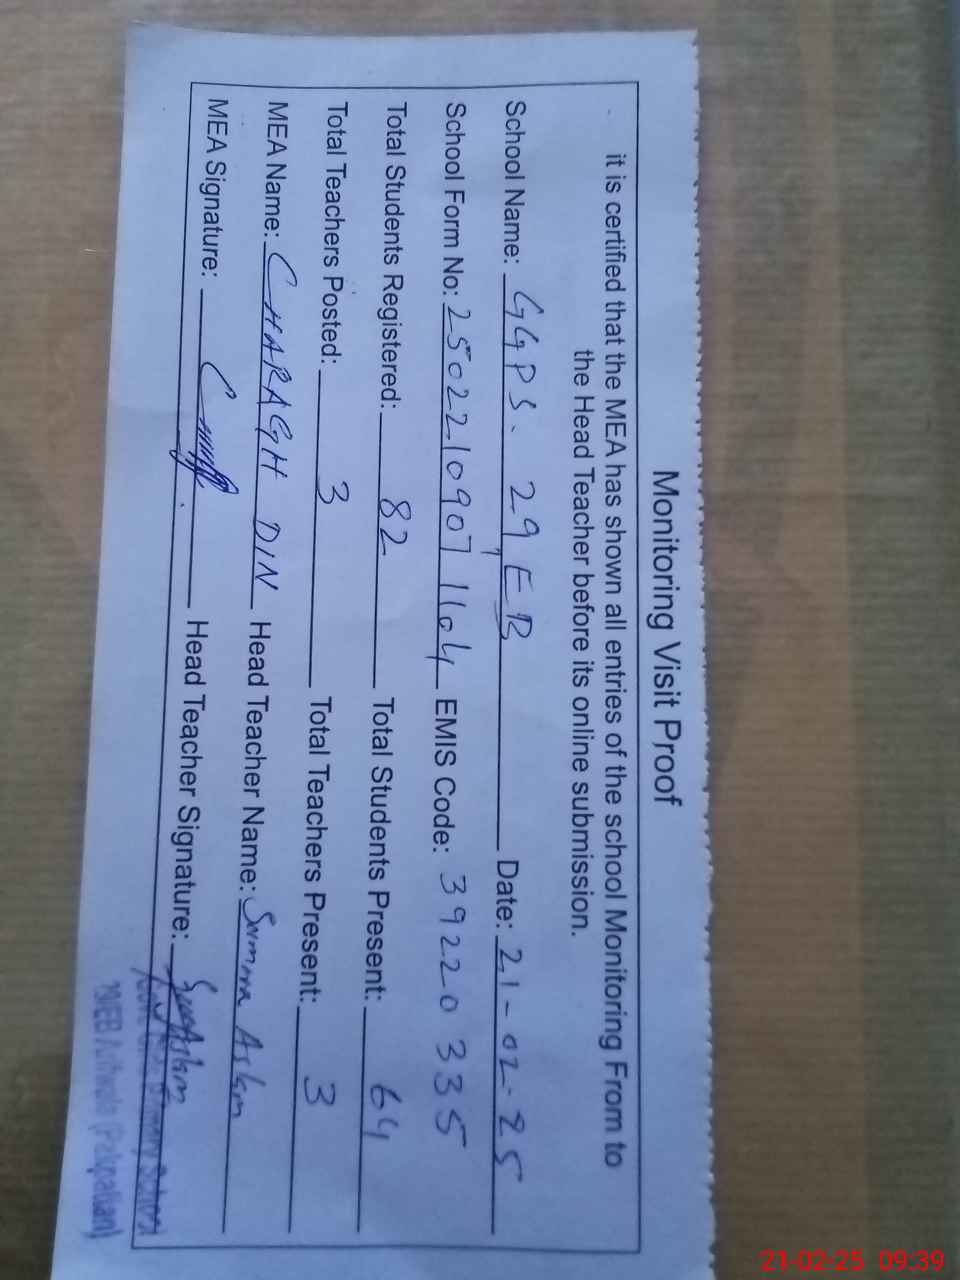 Monitoring Visit Proof
it is certified that the MEA has shown all entries of the school Monitoring From to
the Head Teacher before its online submission.
School Name: GGPS. 29 EB Date: 21-02-25
School Form No: 25022109071104 EMIS Code: 39220335
Total Students Registered: 82 Total Students Present: 64
Total Teachers Posted: 3 Total Teachers Present: 3
MEA Name: CHARAGH DIN Head Teacher Name: Summra Aslam
MEA Signature: Head Teacher Signature:
Primary School
29/EB (Pakpattan)
21-02-25 09:39